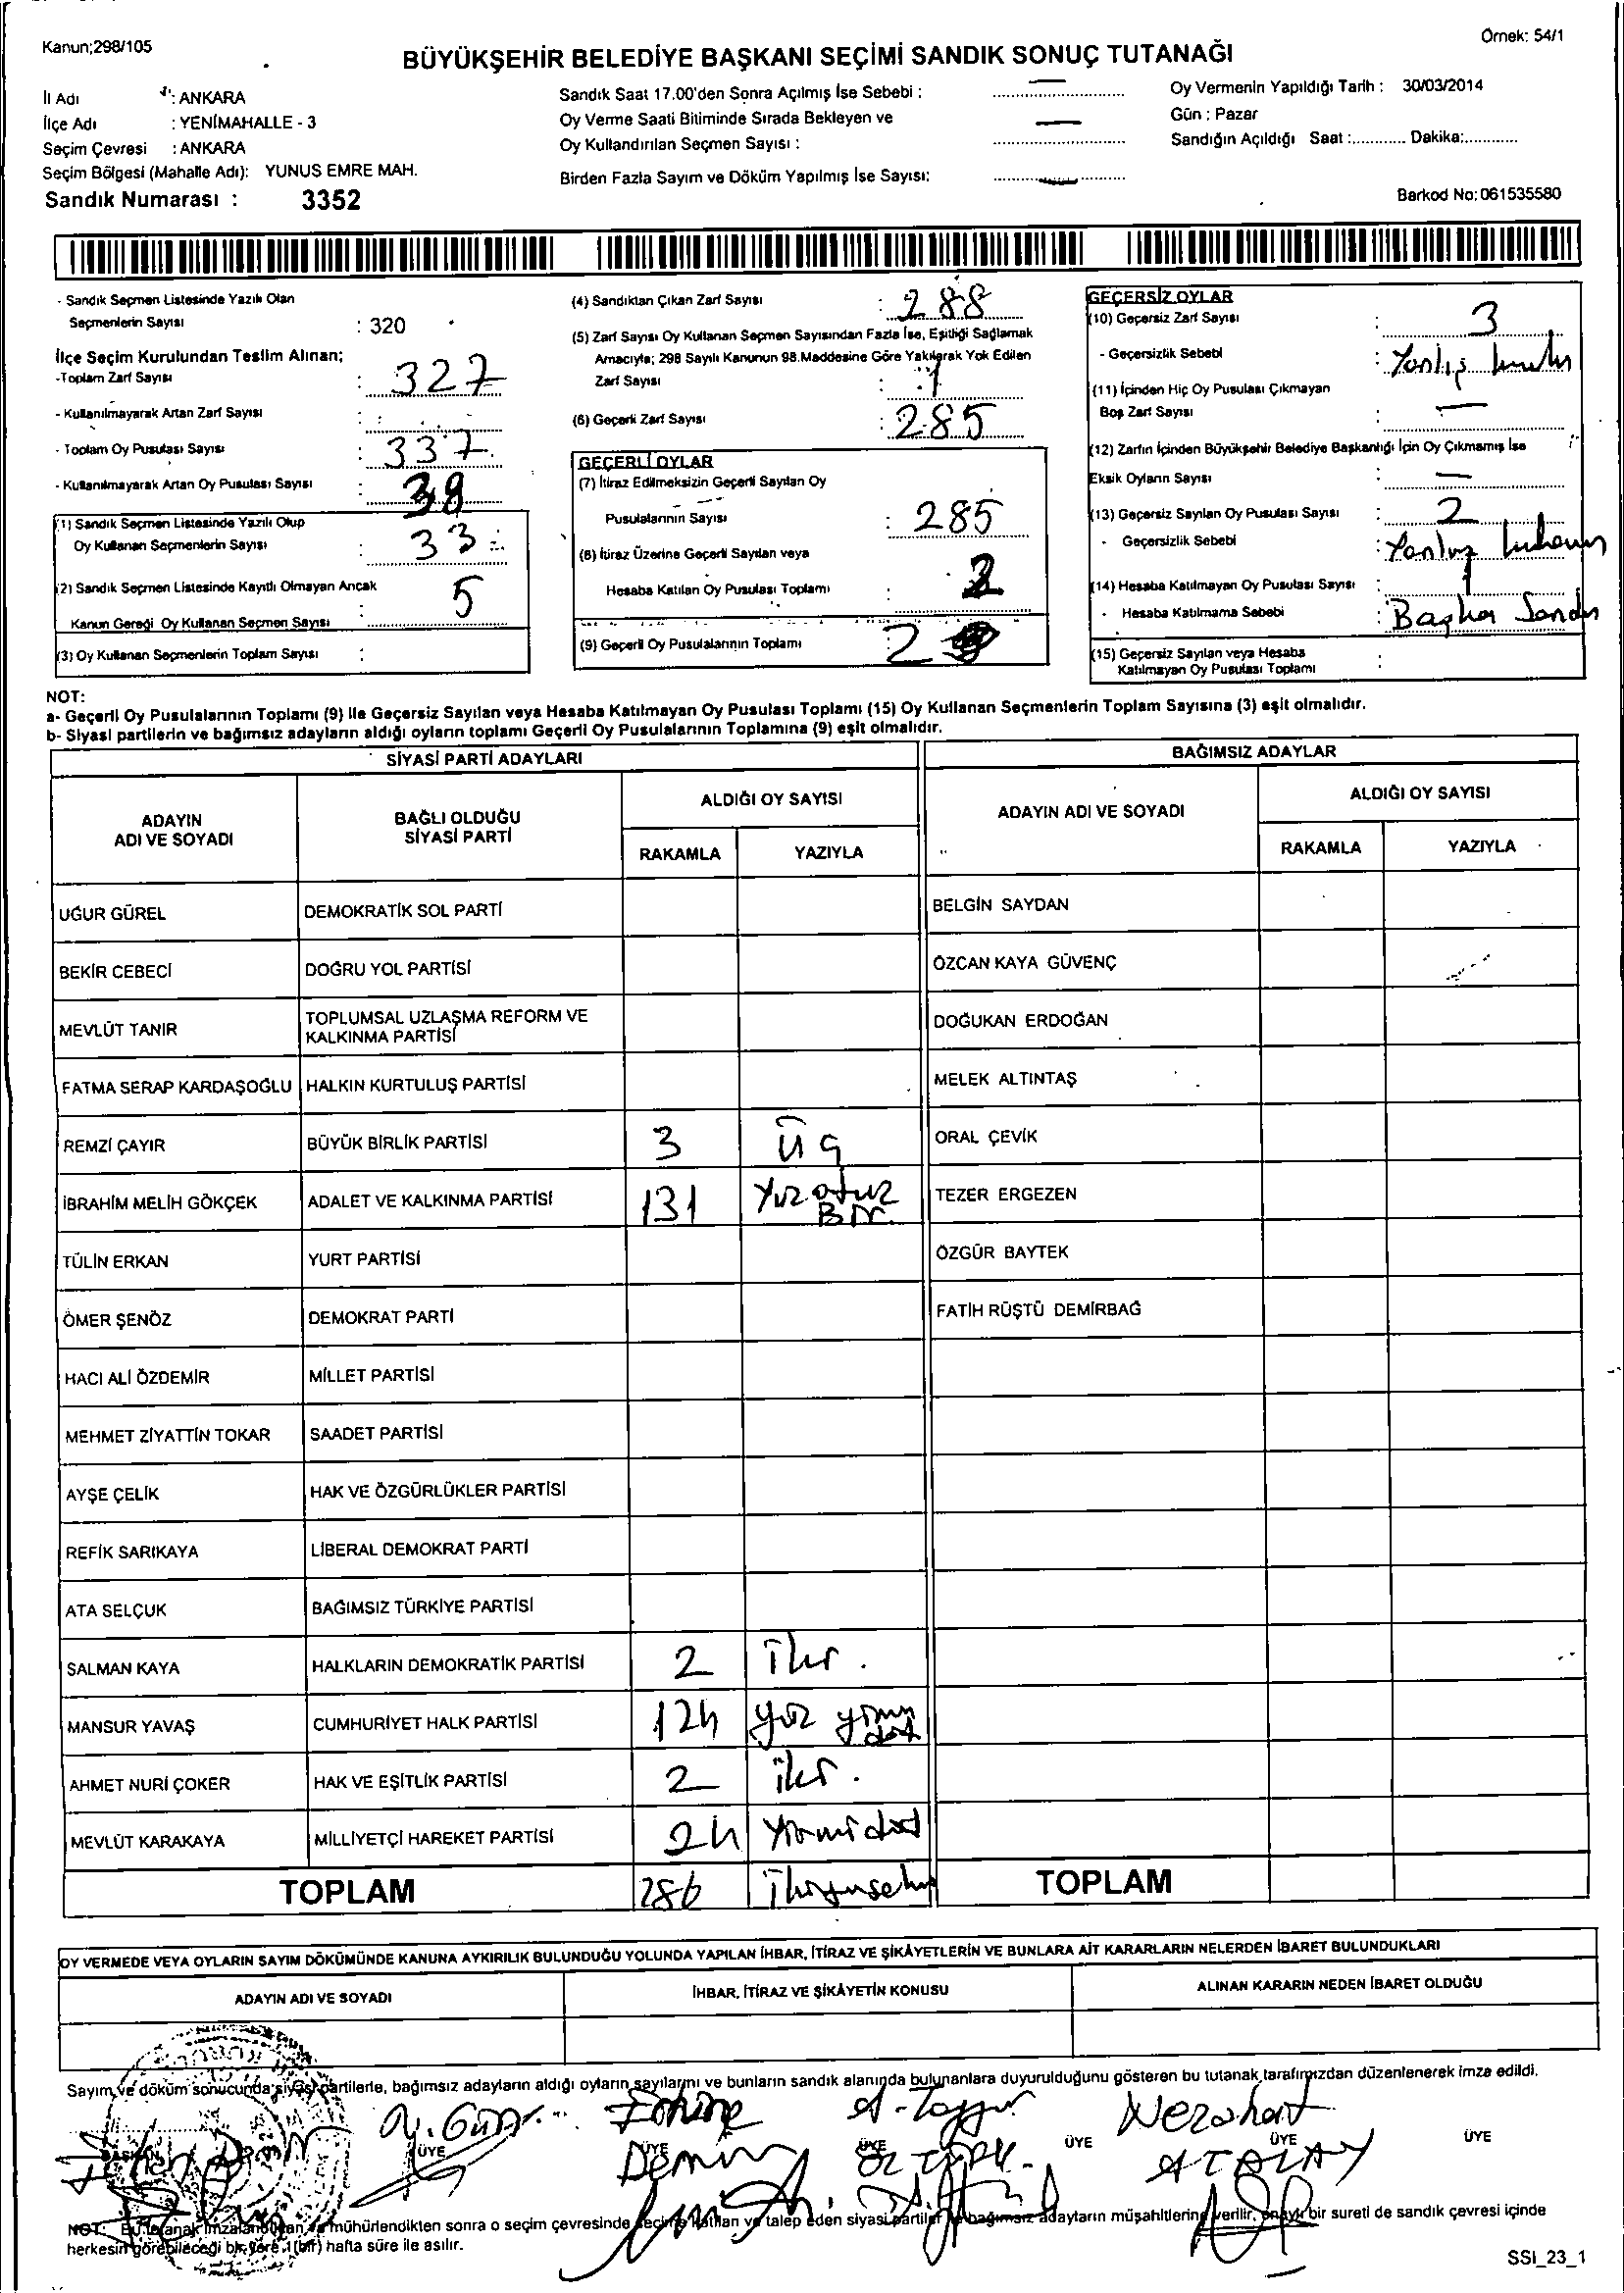 Kanun;298/105
Örnek: 54/1
BÜYÜKŞEHİR BELEDİYE BAŞKANI SEÇİMİ SANDIK SONUÇ TUTANAĞI
İl Adı : ANKARA
İlçe Adı : YENİMAHALLE - 3
Seçim Çevresi : ANKARA
Seçim Bölgesi (Mahalle Adı): YUNUS EMRE MAH.
Sandık Numarası : 3352
Sandık Saat 17.00'den Sonra Açılmış İse Sebebi :
Oy Verme Saati Bitiminde Sırada Bekleyen ve
Oy Kullandırılan Seçmen Sayısı :
Birden Fazla Sayım ve Döküm Yapılmış İse Sayısı:
Oy Vermenin Yapıldığı Tarih : 30/03/2014
Gün : Pazar
Sandığın Açıldığı Saat :............ Dakika:............
Barkod No: 061535580
- Sandık Seçmen Listesinde Yazılı Olan
Seçmenlerin Sayısı : 320
İlçe Seçim Kurulundan Teslim Alınan;
-Toplam Zarf Sayısı : 327
- Kullanılmayarak Artan Zarf Sayısı :
- Toplam Oy Pusulası Sayısı : 337
- Kullanılmayarak Artan Oy Pusulası Sayısı : 38
(1) Sandık Seçmen Listesinde Yazılı Olup
Oy Kullanan Seçmenlerin Sayısı : 33
(2) Sandık Seçmen Listesinde Kayıtlı Olmayan Ancak
Kanun Gereği Oy Kullanan Seçmen Sayısı 5
(3) Oy Kullanan Seçmenlerin Toplam Sayısı :
(4) Sandıktan Çıkan Zarf Sayısı : 288
(5) Zarf Sayısı Oy Kullanan Seçmen Sayısından Fazla İse, Eşitliği Sağlamak
Amacıyla; 298 Sayılı Kanunun 98.Maddesine Göre Yakılarak Yok Edilen
Zarf Sayısı : 1
(6) Geçerli Zarf Sayısı : 285
GEÇERLİ OYLAR
(7) İtiraz Edilmeksizin Geçerli Sayılan Oy
Pusulalarının Sayısı : 285
(8) İtiraz Üzerine Geçerli Sayılan veya
Hesaba Katılan Oy Pusulası Toplamı :
(9) Geçerli Oy Pusulalarının Toplamı : 2
GEÇERSİZ OYLAR
(10) Geçersiz Zarf Sayısı : 3
- Geçersizlik Sebebi : Yanlış
(11) İçinden Hiç Oy Pusulası Çıkmayan
Boş Zarf Sayısı : —
(12) Zarfın İçinden Büyükşehir Belediye Başkanlığı İçin Oy Çıkmamış İse
Eksik Oyların Sayısı : —
(13) Geçersiz Sayılan Oy Pusulası Sayısı : 2
- Geçersizlik Sebebi :
(14) Hesaba Katılmayan Oy Pusulası Sayısı : 1
- Hesaba Katılmama Sebebi : Başka Sandık
(15) Geçersiz Sayılan veya Hesaba
Katılmayan Oy Pusulası Toplamı :
NOT:
a- Geçerli Oy Pusulalarının Toplamı (9) ile Geçersiz Sayılan veya Hesaba Katılmayan Oy Pusulası Toplamı (15) Oy Kullanan Seçmenlerin Toplam Sayısına (3) eşit olmalıdır.
b- Siyasi partilerin ve bağımsız adayların aldığı oyların toplamı Geçerli Oy Pusulalarının Toplamına (9) eşit olmalıdır.
SİYASİ PARTİ ADAYLARI
ADAYIN ADI VE SOYADI BAĞLI OLDUĞU SİYASİ PARTİ ALDIĞI OY SAYISI RAKAMLA YAZIYLA
UĞUR GÜREL DEMOKRATİK SOL PARTİ
BEKİR CEBECİ DOĞRU YOL PARTİSİ
MEVLÜT TANIR TOPLUMSAL UZLAŞMA REFORM VE KALKINMA PARTİSİ
FATMA SERAP KARDAŞOĞLU HALKIN KURTULUŞ PARTİSİ
REMZİ ÇAYIR BÜYÜK BİRLİK PARTİSİ 3 Üç
İBRAHİM MELİH GÖKÇEK ADALET VE KALKINMA PARTİSİ 131 Yüz otuz Bir
TÜLİN ERKAN YURT PARTİSİ
ÖMER ŞENÖZ DEMOKRAT PARTİ
HACI ALİ ÖZDEMİR MİLLET PARTİSİ
MEHMET ZİYATTİN TOKAR SAADET PARTİSİ
AYŞE ÇELİK HAK VE ÖZGÜRLÜKLER PARTİSİ
REFİK SARIKAYA LİBERAL DEMOKRAT PARTİ
ATA SELÇUK BAĞIMSIZ TÜRKİYE PARTİSİ
SALMAN KAYA HALKLARIN DEMOKRATİK PARTİSİ 2 İki .
MANSUR YAVAŞ CUMHURİYET HALK PARTİSİ 124 yüz yirmi dört
AHMET NURİ ÇOKER HAK VE EŞİTLİK PARTİSİ 2 iki .
MEVLÜT KARAKAYA MİLLİYETÇİ HAREKET PARTİSİ 24 Yirmi dört
TOPLAM 286
BAĞIMSIZ ADAYLAR
ADAYIN ADI VE SOYADI ALDIĞI OY SAYISI RAKAMLA YAZIYLA
BELGİN SAYDAN
ÖZCAN KAYA GÜVENÇ
DOĞUKAN ERDOĞAN
MELEK ALTINTAŞ
ORAL ÇEVİK
TEZER ERGEZEN
ÖZGÜR BAYTEK
FATİH RÜŞTÜ DEMİRBAĞ
TOPLAM
OY VERMEDE VEYA OYLARIN SAYIM DÖKÜMÜNDE KANUNA AYKIRILIK BULUNDUĞU YOLUNDA YAPILAN İHBAR, İTİRAZ VE ŞİKÂYETLERİN VE BUNLARA AİT KARARLARIN NELERDEN İBARET BULUNDUKLARI
ADAYIN ADI VE SOYADI İHBAR, İTİRAZ VE ŞİKÂYETİN KONUSU ALINAN KARARIN NEDEN İBARET OLDUĞU
Sayım ve döküm sonucunda siyasi partilerle, bağımsız adayların aldığı oyların sayılarını ve bunların sandık alanında bulunanlara duyurulduğunu gösteren bu tutanak tarafımızdan düzenlenerek imza edildi.
BAŞKAN ÜYE ÜYE ÜYE ÜYE ÜYE ÜYE
NOT: Bu tutanak imzalandıktan ve mühürlendikten sonra o seçim çevresinde seçime katılan ve talep eden siyasi partiler ve bağımsız adayların müşahitlerine verilir, onaylı bir sureti de sandık çevresi içinde
herkesin görebileceği bir yere 1(bir) hafta süre ile asılır.
SSI_23_1